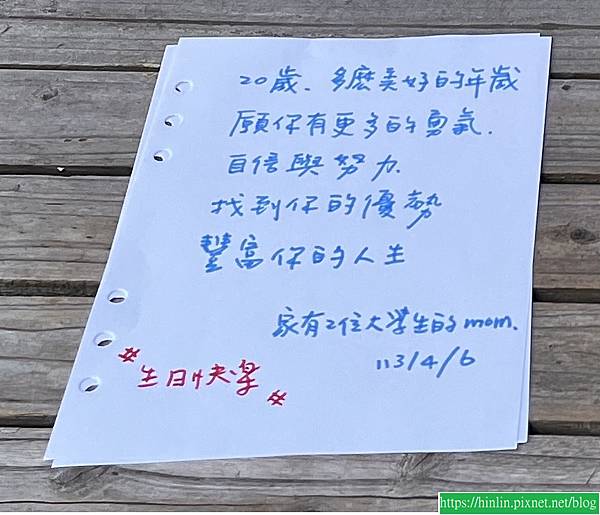 20歲、多麼美好的年歲
願你有更多的勇氣.
自信與努力.
找到你的優勢
豐富你的人生
家有2位大學生的mom.
113/4/6
"生日快樂"
https://hinlin.pixnet.net/blog